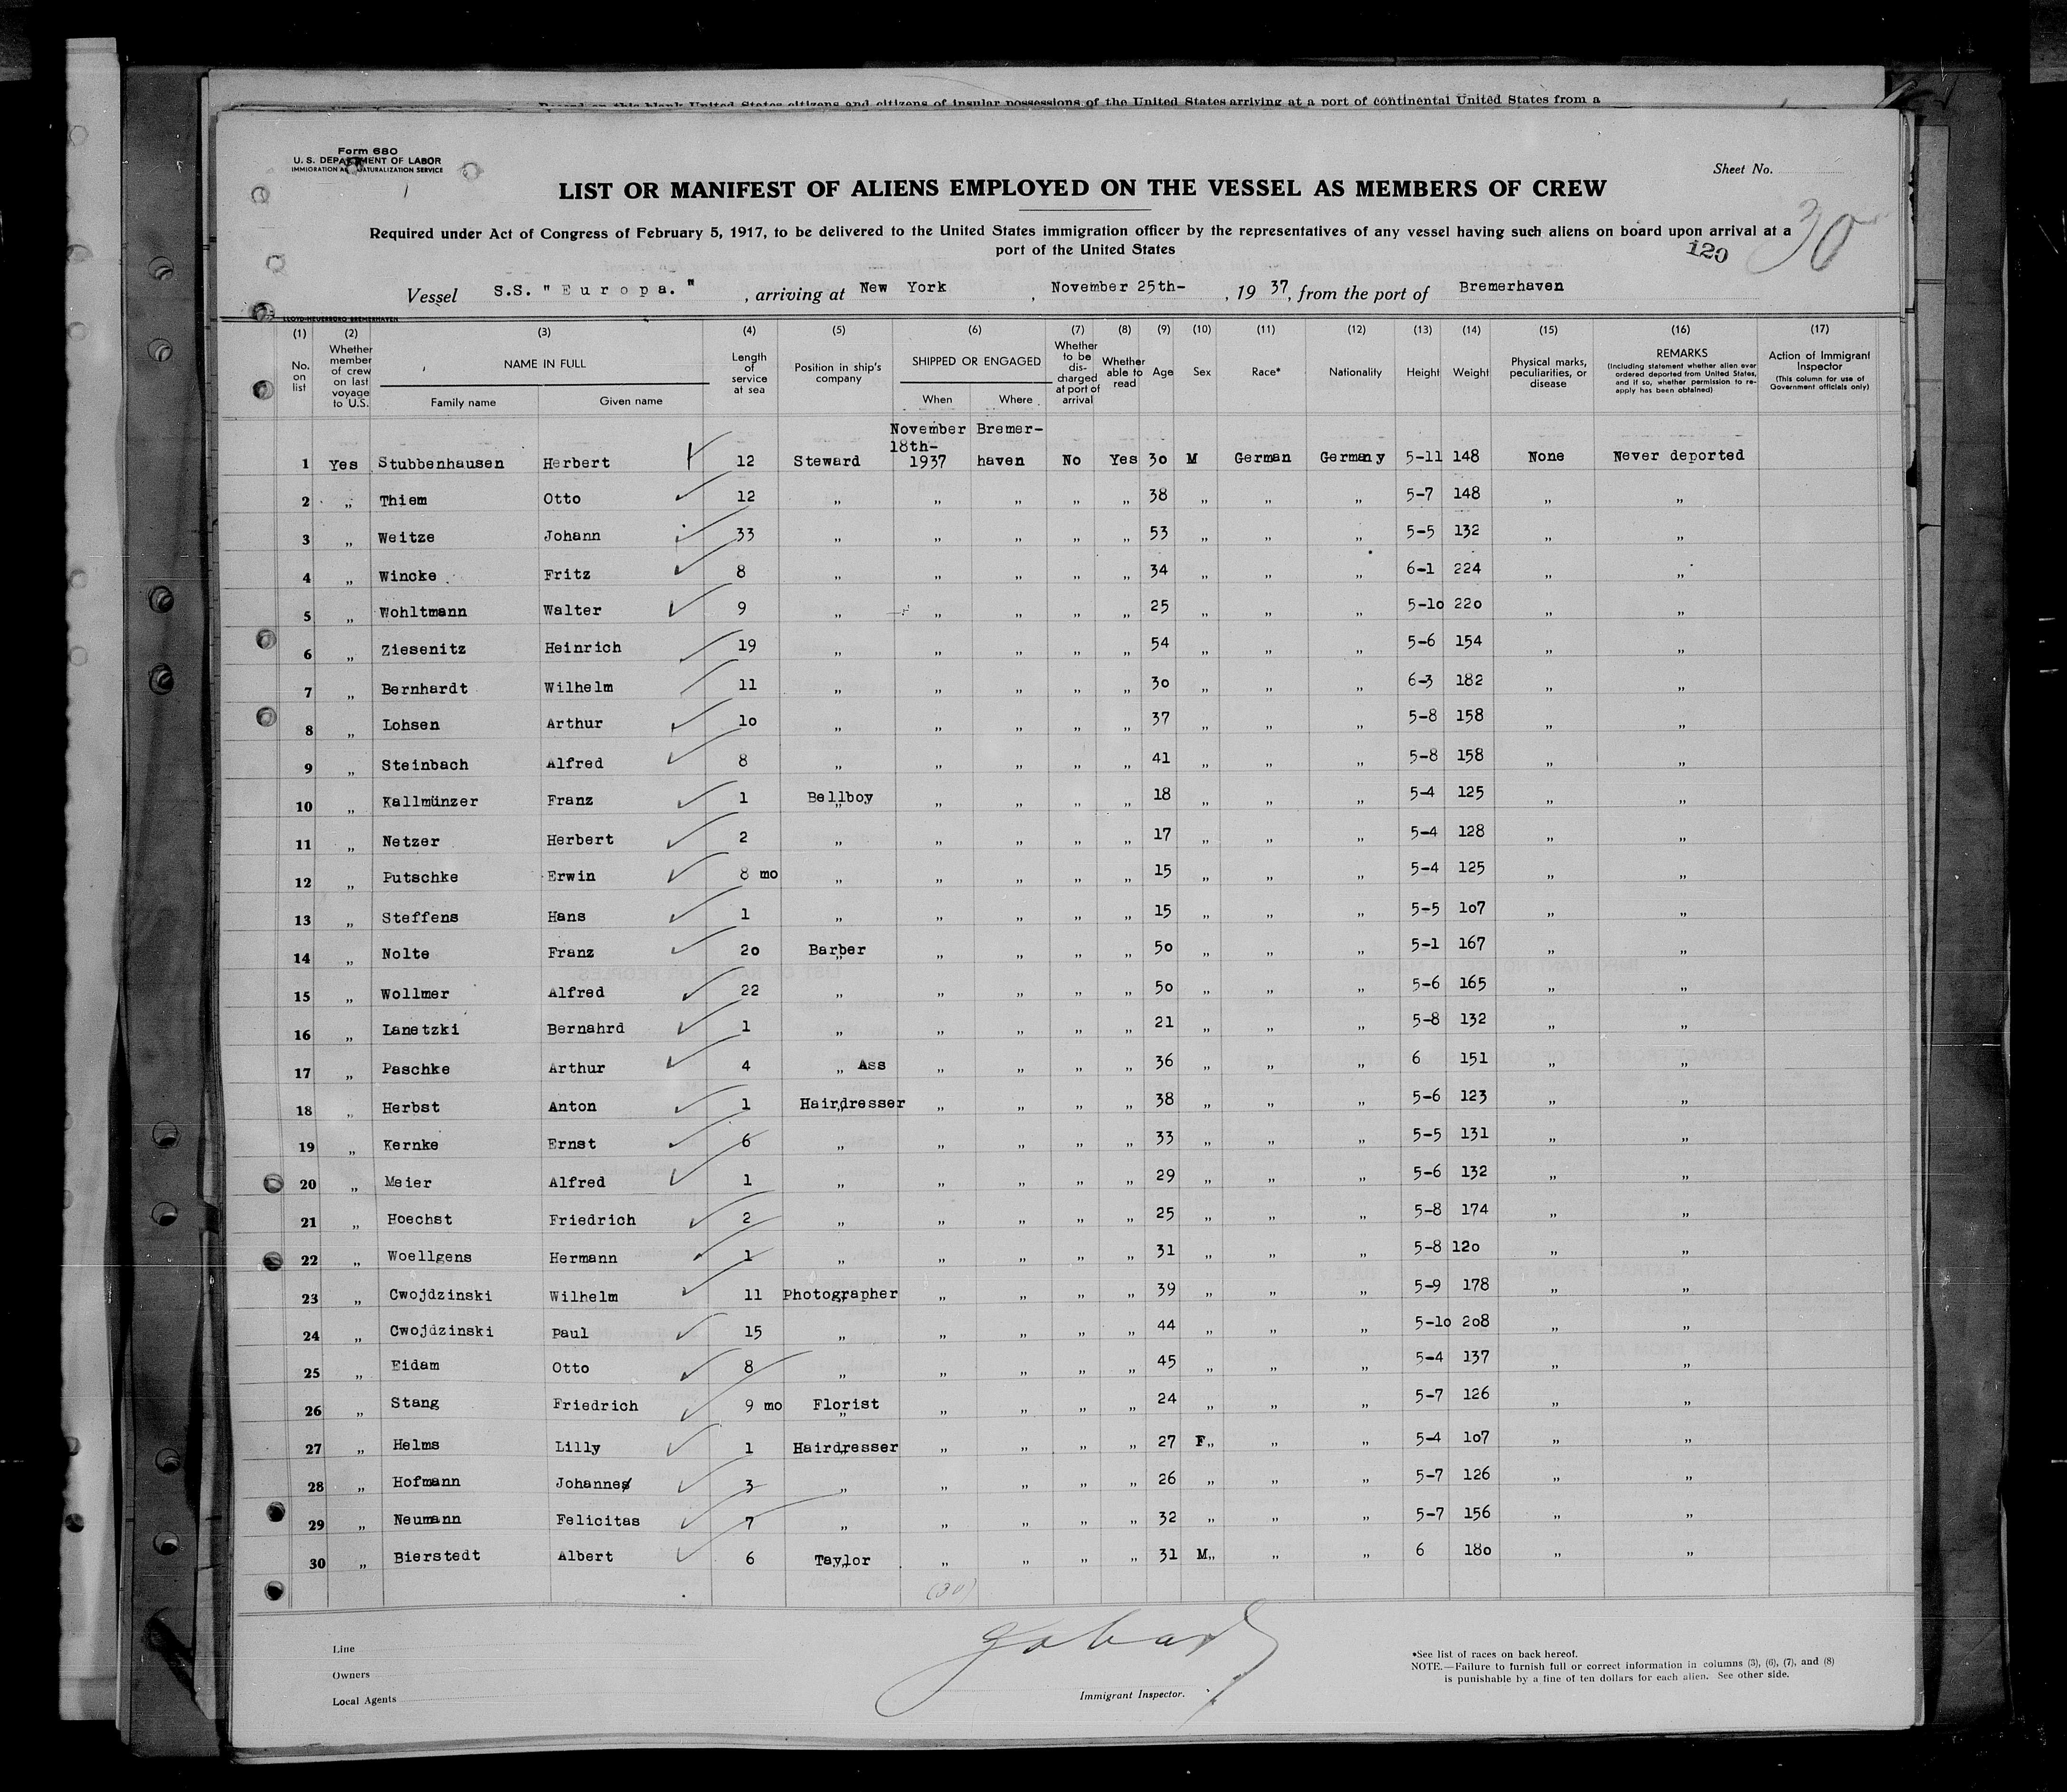 Form 680
U. S. DEPARTMENT OF LABOR
IMMIGRATION AND NATURALIZATION SERVICE
Sheet No.
LIST OR MANIFEST OF ALIENS EMPLOYED ON THE VESSEL AS MEMBERS OF CREW
Required under Act of Congress of February 5, 1917, to be delivered to the United States immigration officer by the representatives of any vessel having such aliens on board upon arrival at a
port of the United States
120
30
Vessel S.S. "Europa." , arriving at New York , November 25th- , 1937, from the port of Bremerhaven
(1) (2) (3) (4) (5) (6) (7) (8) (9) (10) (11) (12) (13) (14) (15) (16) (17)
No. on list
Whether member of crew on last voyage to U.S.
NAME IN FULL
Family name
Given name
Length of service at sea
Position in ship's company
SHIPPED OR ENGAGED
When
Where
Whether to be discharged at port of arrival
Whether able to read
Age
Sex
Race*
Nationality
Height
Weight
Physical marks, peculiarities, or disease
REMARKS
(Including statement whether alien ever ordered deported from United States, and if so, whether permission to re-apply has been obtained)
Action of Immigrant Inspector
(This column for use of Government officials only)
1 Yes Stubbenhausen Herbert 12 Steward November 18th- 1937 Bremer-haven No Yes 30 M German Germany 5-11 148 None Never deported
2 „ Thiem Otto 12 „ „ „ „ „ 38 „ „ „ 5-7 148 „ „
3 „ Weitze Johann 33 „ „ „ „ „ 53 „ „ „ 5-5 132 „ „
4 „ Wincke Fritz 8 „ „ „ „ „ 34 „ „ „ 6-1 224 „ „
5 „ Wohltmann Walter 9 „ „ „ „ „ 25 „ „ „ 5-10 220 „ „
6 „ Ziesenitz Heinrich 19 „ „ „ „ „ 54 „ „ „ 5-6 154 „ „
7 „ Bernhardt Wilhelm 11 „ „ „ „ „ 30 „ „ „ 6-3 182 „ „
8 „ Lohsen Arthur 10 „ „ „ „ „ 37 „ „ „ 5-8 158 „ „
9 „ Steinbach Alfred 8 „ „ „ „ „ 41 „ „ „ 5-8 158 „ „
10 „ Kallmünzer Franz 1 Bellboy „ „ „ „ 18 „ „ „ 5-4 125 „ „
11 „ Netzer Herbert 2 „ „ „ „ „ 17 „ „ „ 5-4 128 „ „
12 „ Putschke Erwin 8 mo „ „ „ „ „ 15 „ „ „ 5-4 125 „ „
13 „ Steffens Hans 1 „ „ „ „ „ 15 „ „ „ 5-5 107 „ „
14 „ Nolte Franz 20 Barber „ „ „ „ 50 „ „ „ 5-1 167 „ „
15 „ Wollmer Alfred 22 „ „ „ „ „ 50 „ „ „ 5-6 165 „ „
16 „ Lanetzki Bernahrd 1 „ „ „ „ „ 21 „ „ „ 5-8 132 „ „
17 „ Paschke Arthur 4 „ Ass „ „ „ „ 36 „ „ „ 6 151 „ „
18 „ Herbst Anton 1 Hairdresser „ „ „ „ 38 „ „ „ 5-6 123 „ „
19 „ Kernke Ernst 6 „ „ „ „ „ 33 „ „ „ 5-5 131 „ „
20 „ Meier Alfred 1 „ „ „ „ „ 29 „ „ „ 5-6 132 „ „
21 „ Hoechst Friedrich 2 „ „ „ „ „ 25 „ „ „ 5-8 174 „ „
22 „ Woellgens Hermann 1 „ „ „ „ „ 31 „ „ „ 5-8 120 „ „
23 „ Cwojdzinski Wilhelm 11 Photographer „ „ „ „ 39 „ „ „ 5-9 178 „ „
24 „ Cwojdzinski Paul 15 „ „ „ „ „ 44 „ „ „ 5-10 208 „ „
25 „ Eidam Otto 8 „ „ „ „ „ 45 „ „ „ 5-4 137 „ „
26 „ Stang Friedrich 9 mo Florist „ „ „ „ 24 „ „ „ 5-7 126 „ „
27 „ Helms Lilly 1 Hairdresser „ „ „ „ 27 F„ „ „ 5-4 107 „ „
28 „ Hofmann Johannes 3 „ „ „ „ „ 26 „ „ „ 5-7 126 „ „
29 „ Neumann Felicitas 7 „ „ „ „ „ 32 „ „ „ 5-7 156 „ „
30 „ Bierstedt Albert 6 Taylor „ „ „ „ 31 M„ „ „ 6 180 „ „
(30)
Line
Owners
Local Agents
Immigrant Inspector.
*See list of races on back hereof.
NOTE.—Failure to furnish full or correct information in columns (3), (6), (7), and (8)
is punishable by a line of ten dollars for each alien. See other side.